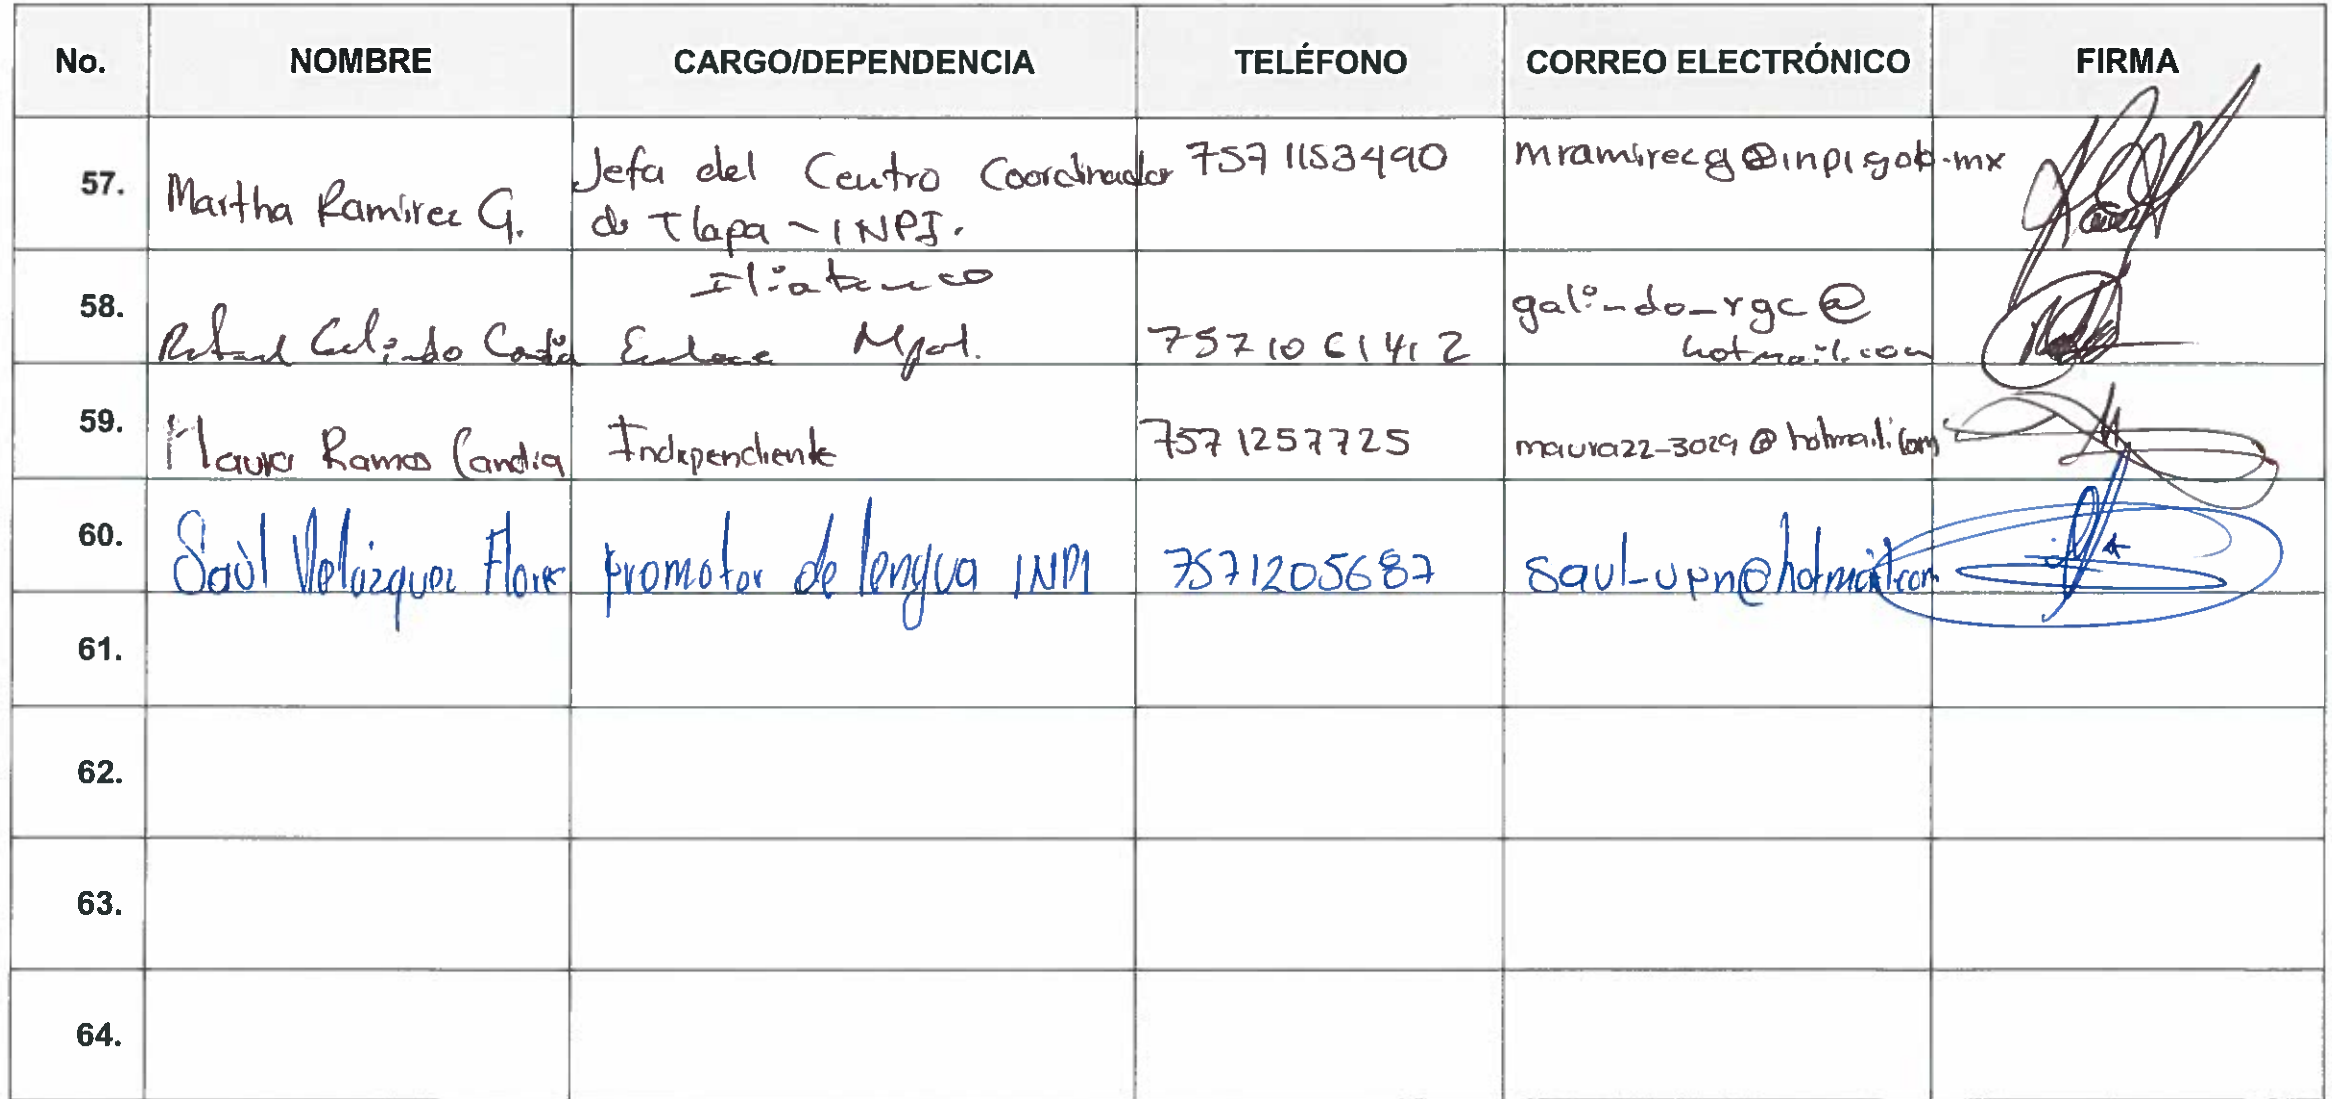 No. NOMBRE CARGO/DEPENDENCIA TELÉFONO CORREO ELECTRÓNICO FIRMA
57. Martha Ramirez G. Jefa del Centro Coordinador 7571153490 mramirezg@inpi.gob.mx
de Tlapa - INPI.
Iliatenco
58. Rafael Galindo Enlace Mpal. 7571061412 galindo_rgc@
hotmail.com
59. Maura Ramos Candia Independiente 7571257725 maura22-3029@hotmail.com
60. Saùl Velázquez Flores promotor de lengua INPI 7571205687 saul-upn@hotmail.com
61.
62.
63.
64.